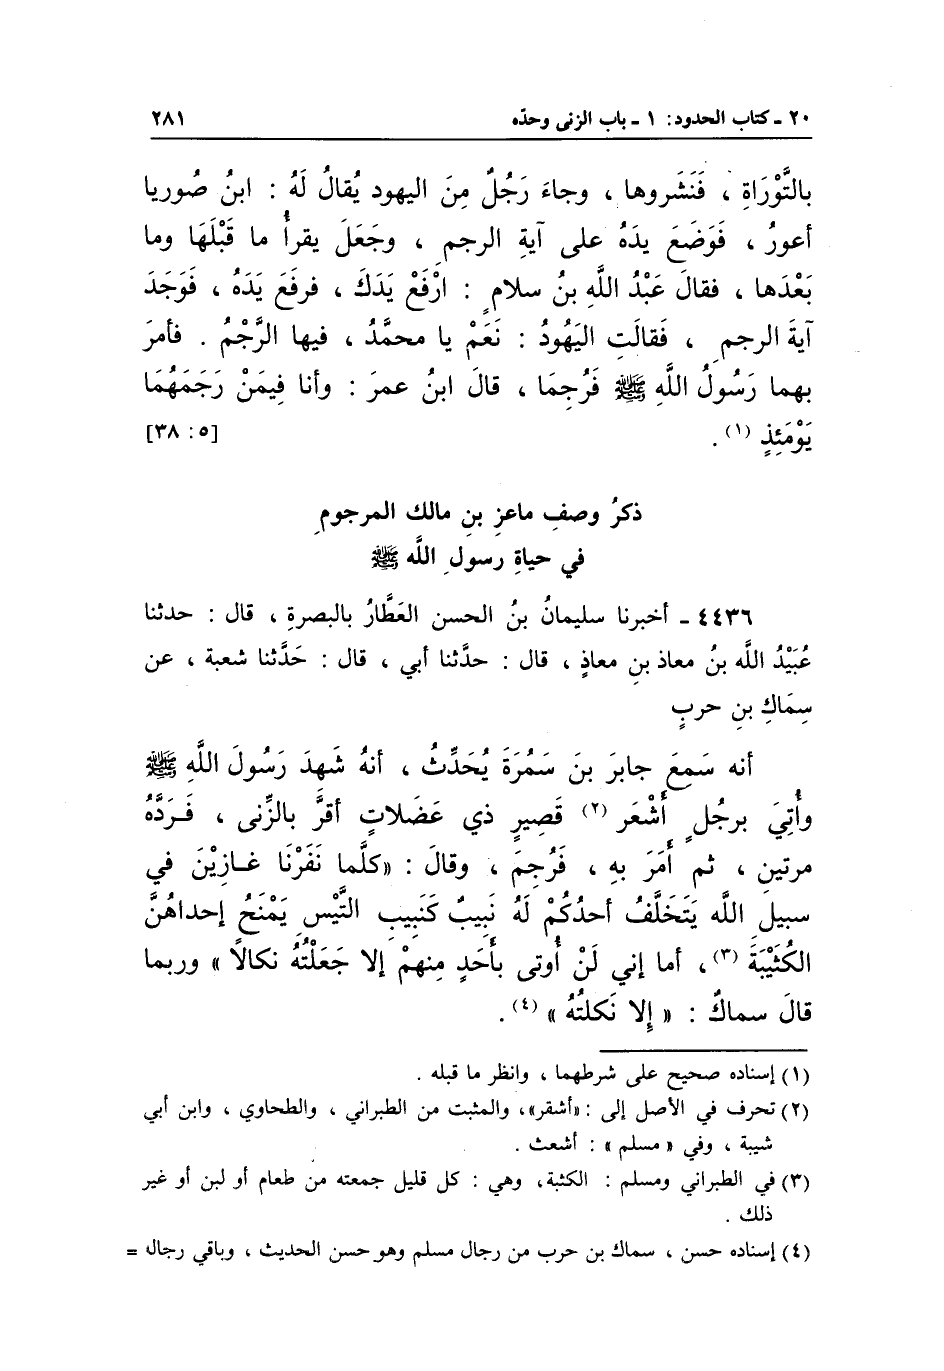 ٢٠ ـ كتاب الحدود: ١ ـ باب الزنى وحدّه ٢٨١
بالتَّوْرَاةِ ، فَنَشَروها ، وجاءَ رَجُلٌ مِنَ اليهود يُقالُ لَهُ : ابنُ صُوريا
أعورُ ، فَوَضَعَ يدَهُ على آيةِ الرجمِ ، وجَعَلَ يقرأُ ما قَبْلَهَا وما
بَعْدَها ، فقالَ عَبْدُ اللَّهِ بنُ سلامٍ : ارْفَعْ يَدَكَ ، فرفَعَ يَدَهُ ، فَوَجَدَ
آيةَ الرجمِ ، فَقالَتِ اليَهُودُ : نَعَمْ يا محمَّدُ ، فيها الرَّجْمُ . فأمرَ
بهما رَسُولُ اللَّهِ ﷺ فَرُجِمَا ، قالَ ابنُ عمرَ : وأنا فِيمَنْ رَجَمَهُمَا
يَوْمَئِذٍ (١) . [٥: ٣٨]
ذكرُ وصفِ ماعزِ بنِ مالك المرجومِ
في حياةِ رسولِ اللَّه ﷺ
٤٤٣٦ ـ أخبرنا سليمانُ بنُ الحسن العَطَّارُ بالبصرةِ ، قال : حدثنا
عُبَيْدُ اللَّه بنُ معاذ بنِ معاذٍ ، قال : حدَّثنا أبي ، قال : حَدَّثنا شعبة ، عن
سِمَاكِ بنِ حربٍ
أنه سَمِعَ جابرَ بنَ سَمُرَةَ يُحَدِّثُ ، أنهُ شَهِدَ رَسُولَ اللَّهِ ﷺ
وأُتِيَ برجُلٍ أَشْعَر (٢) قَصِيرٍ ذي عَضَلاتٍ أقرَّ بالزِّنى ، فَـرَدَّهُ
مرتين ، ثم أَمَرَ بِهِ ، فَرُجِمَ ، وقالَ : «كلَّما نَفَرْنَا غـازِيْنَ في
سبيلِ اللَّه يَتَخَلَّفُ أحدُكُمْ لَهُ نَبِيبٌ كَنَبِيبِ التَّيْسِ يَمْنَحُ إحداهُنَّ
الكُثَيْبَةَ (٣)، أما إني لَنْ أُوتى بأَحَدٍ مِنهمْ إلا جَعَلْتُهُ نكالاً » وربما
قالَ سماكٌ : « إِلا نَكلتُهُ » (٤) .
(١) إسناده صحيح على شرطهما ، وانظر ما قبله .
(٢) تحرف في الأصل إلى : «أشقر»، والمثبت من الطبراني ، والطحاوي ، وابن أبي
شيبة ، وفي « مسلم » : أشعث .
(٣) في الطبراني ومسلم : الكثبة، وهي : كل قليل جمعته من طعام أو لبن أو غير
ذلك .
(٤) إسناده حسن ، سماك بن حرب من رجال مسلم وهو حسن الحديث ، وباقي رجاله =